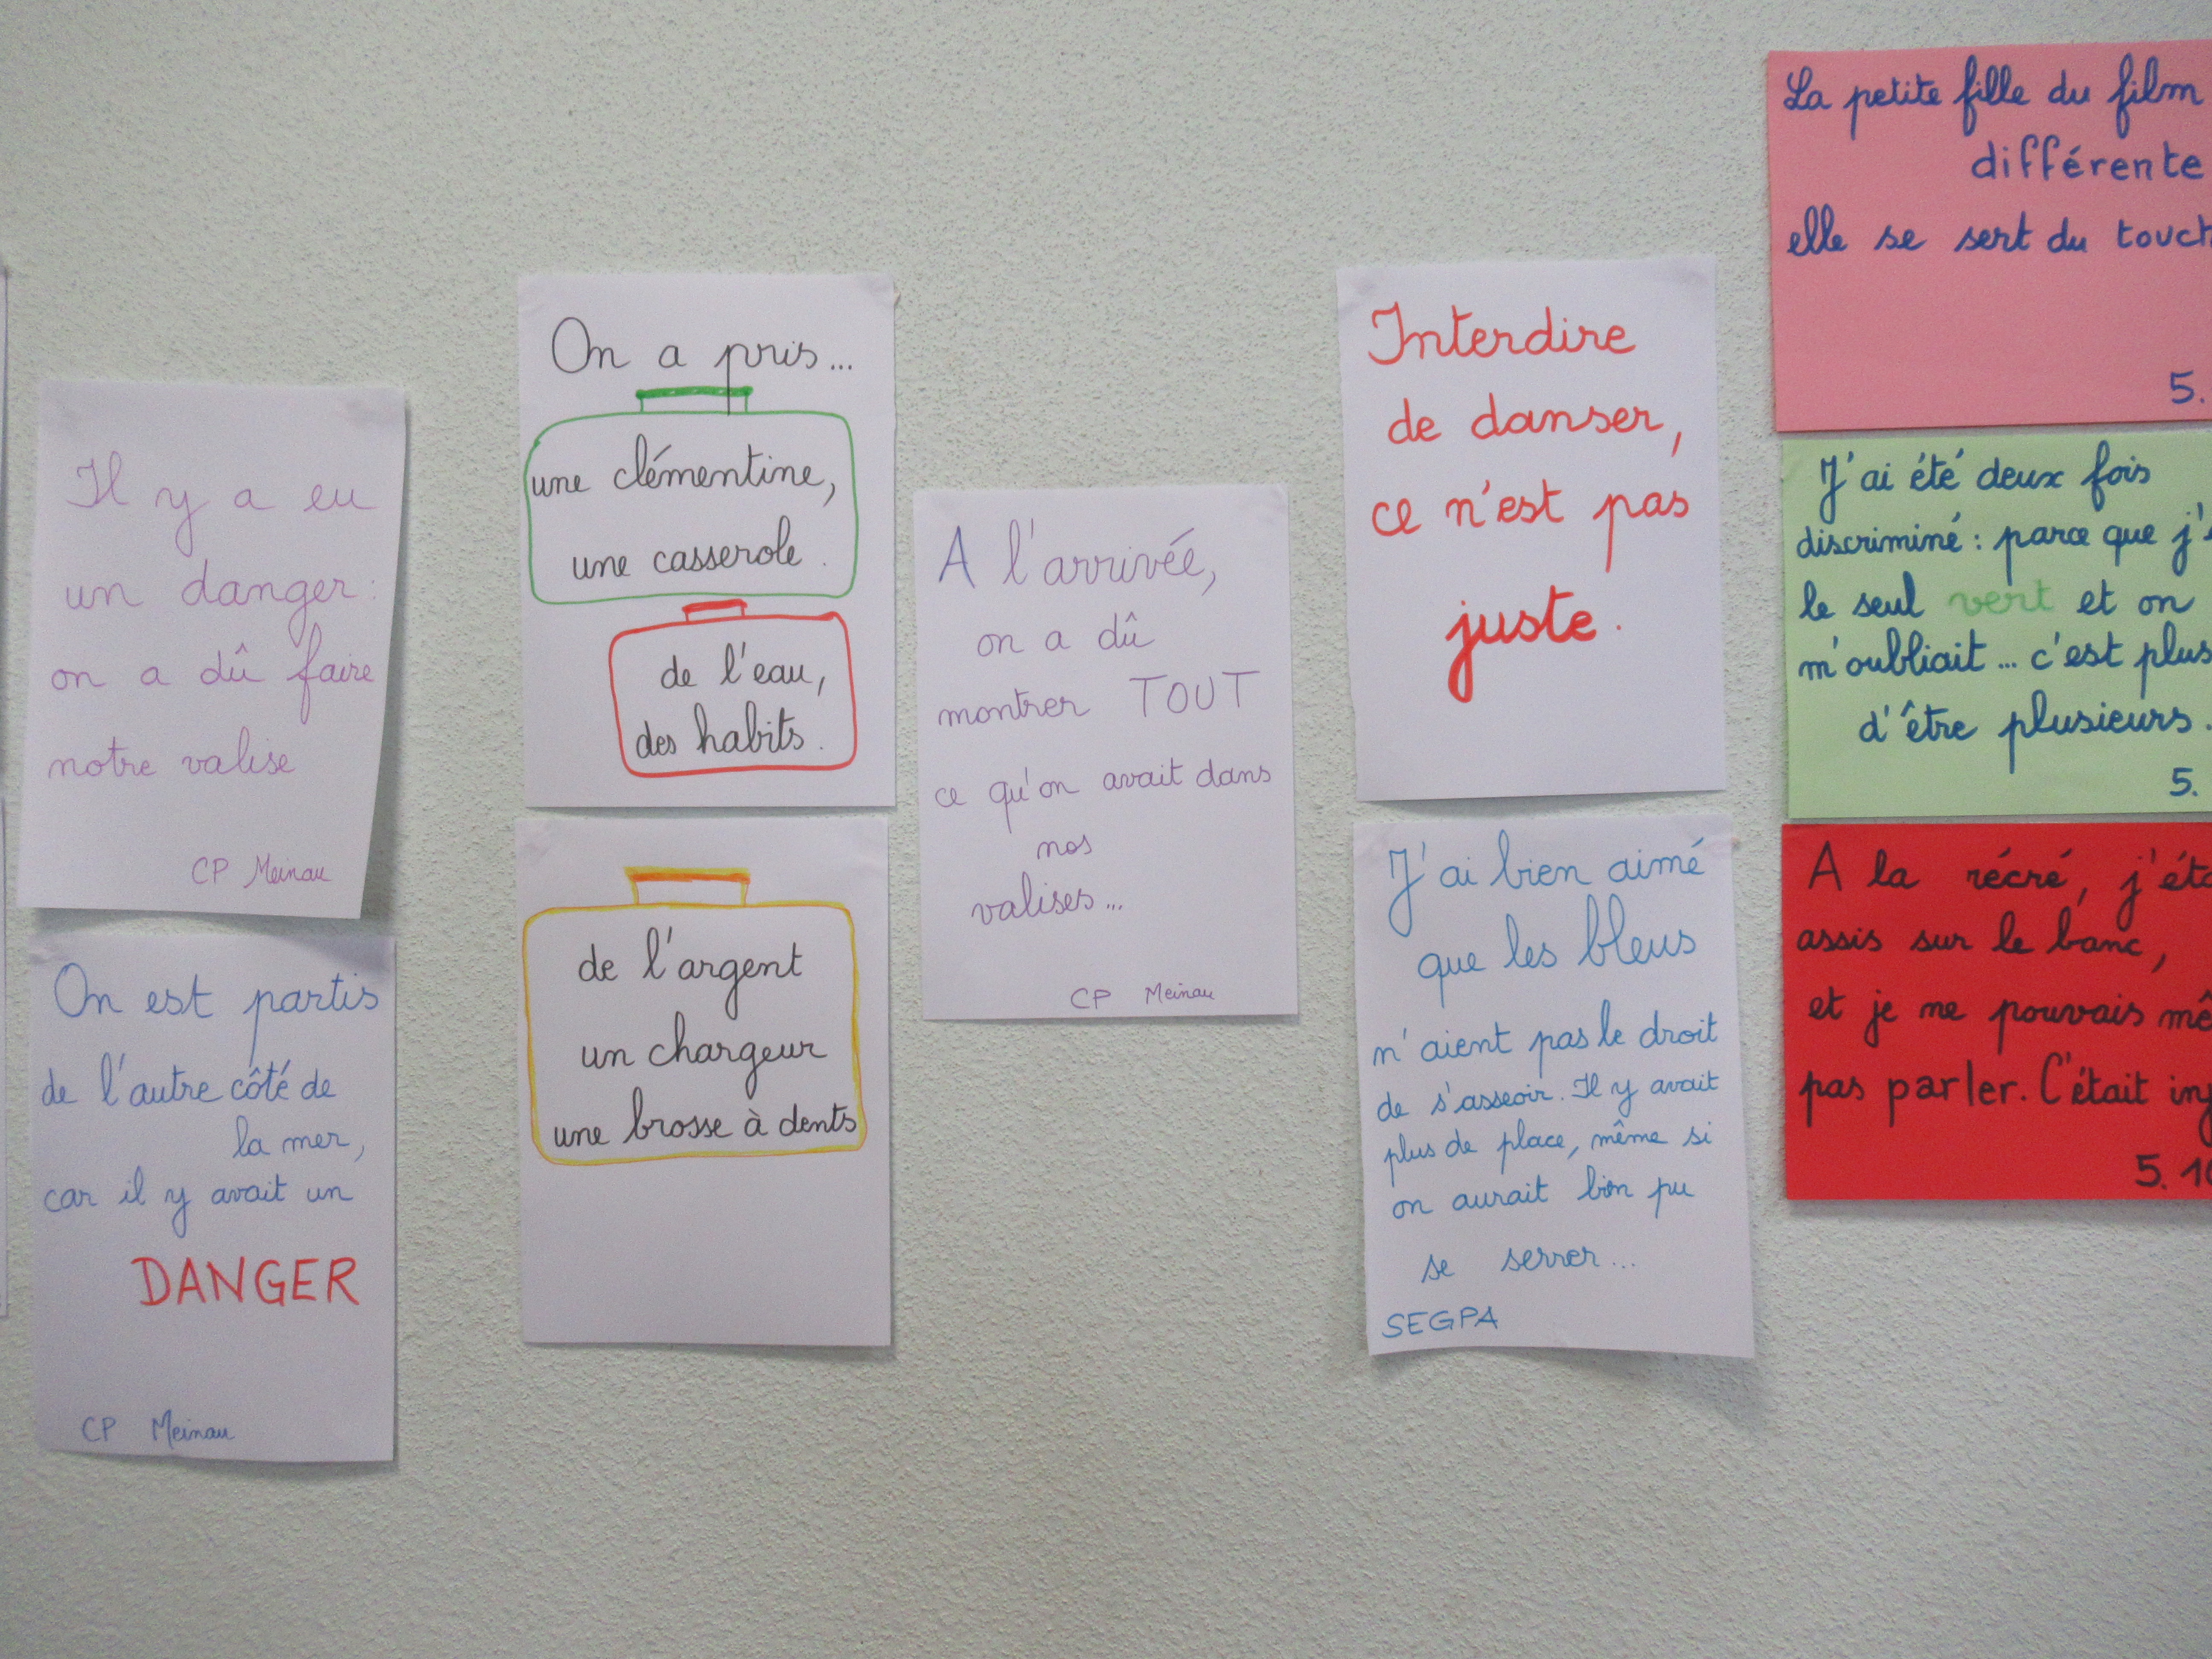 Il y a eu
un danger :
on a dû faire
notre valise
CP Meinau
On est partis
de l'autre côté de
la mer,
car il y avait un
DANGER
CP Meinau
On a pris...
une clémentine,
une casserole.
de l'eau,
des habits.
de l'argent
un chargeur
une brosse à dents
A l'arrivée,
on a dû
montrer TOUT
ce qu'on avait dans
nos
valises...
CP Meinau
Interdire
de danser,
ce n'est pas
juste.
J'ai bien aimé
que les bleus
n'aient pas le droit
de s'asseoir. Il y avait
plus de place, même si
on aurait bien pu
se serrer...
SEGPA
La petite fille du film
différente
elle se sert du
5.
J'ai été deux fois
discriminé : parce que j'
le seul vert et on
m'oubliait... c'est plus
d'être plusieurs.
5.
A la récré,
assis sur le banc,
et je ne pouvais
pas parler. C'était
5.